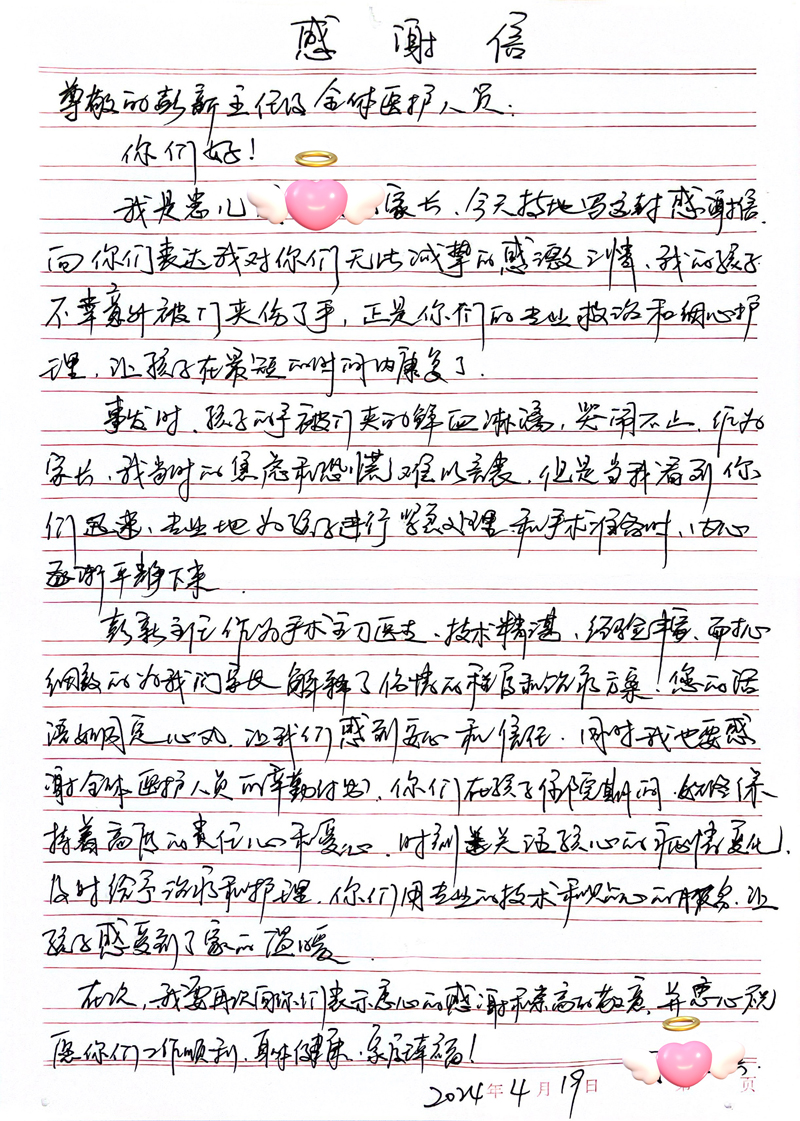 感谢信
尊敬的彭新主任及全体医护人员:
你们好!
我是患儿 家长、今天特地写这封感谢信.
向你们表达我对你们无比诚挚的感激之情、我的孩子
不幸意外被门夹伤了手,正是你们的专业救治和细心护
理、让孩子在最短的时间内康复了.
事发时、孩子的手被门夹的鲜血淋漓,哭闹不止、作为
家长、我当时的焦虑和恐慌难以言表、但是当我看到你
们迅速、专业地为孩子进行紧急处理和手术准备时、内心
逐渐平静下来.
彭新主任作为手术主刀医生、技术精湛、经验丰富、耐心
细致的为我们家长解释了伤情的程度和治疗方案!您的话
语如同定心丸、让我们感到安心和信任.同时我也要感
谢全体医护人员的辛勤付出、你们在孩子住院期间、始终保
持着高度的责任心和爱心、时刻关注孩心的病情变化、
及时给予治疗和护理、你们用专业的技术和贴心的服务、让
孩子感受到了家的温暖
在次,我要再次向你们表示忠心的感谢和崇高的敬意、并忠心祝
愿你们工作顺利、身体健康、家庭幸福!
2024年4月19日 页